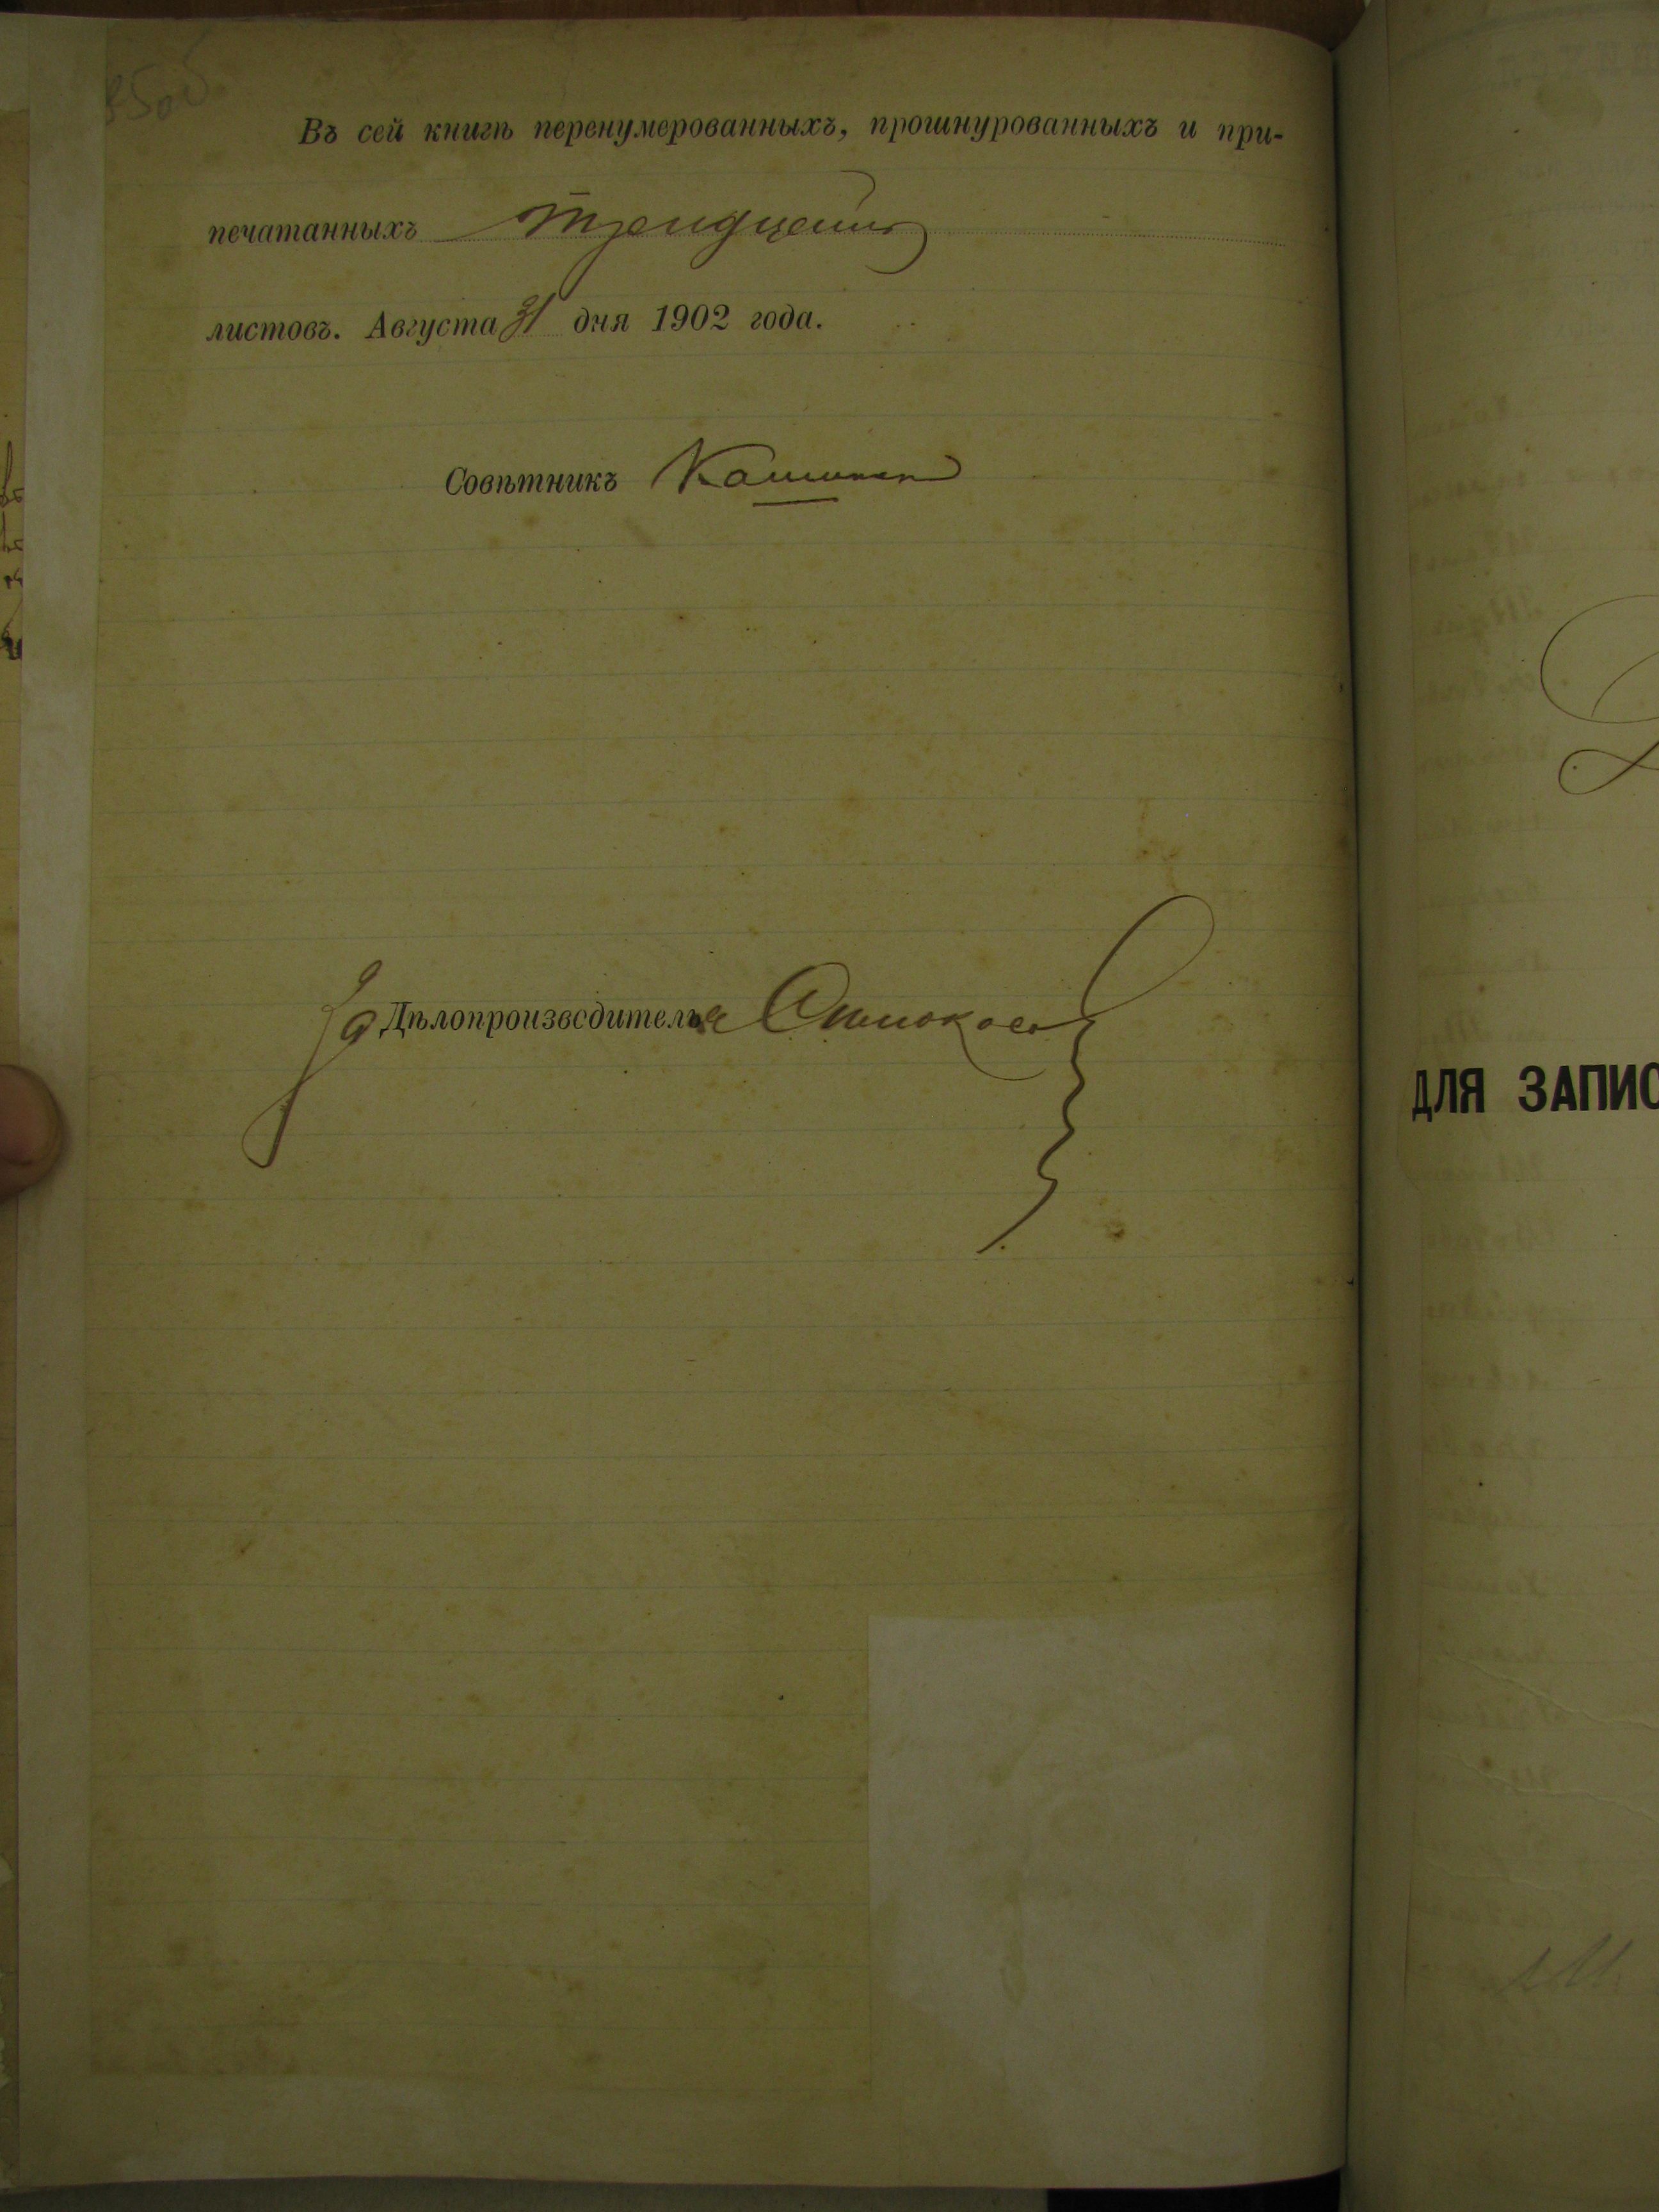 Въ сей книгѣ перенумерованныхъ, прошнурованныхъ и при-
печатанныхъ тридцать
листовъ. Августа 31 дня 1902 года.
Совѣтникъ
За Дѣлопроизводителя
ДЛЯ ЗАПИС